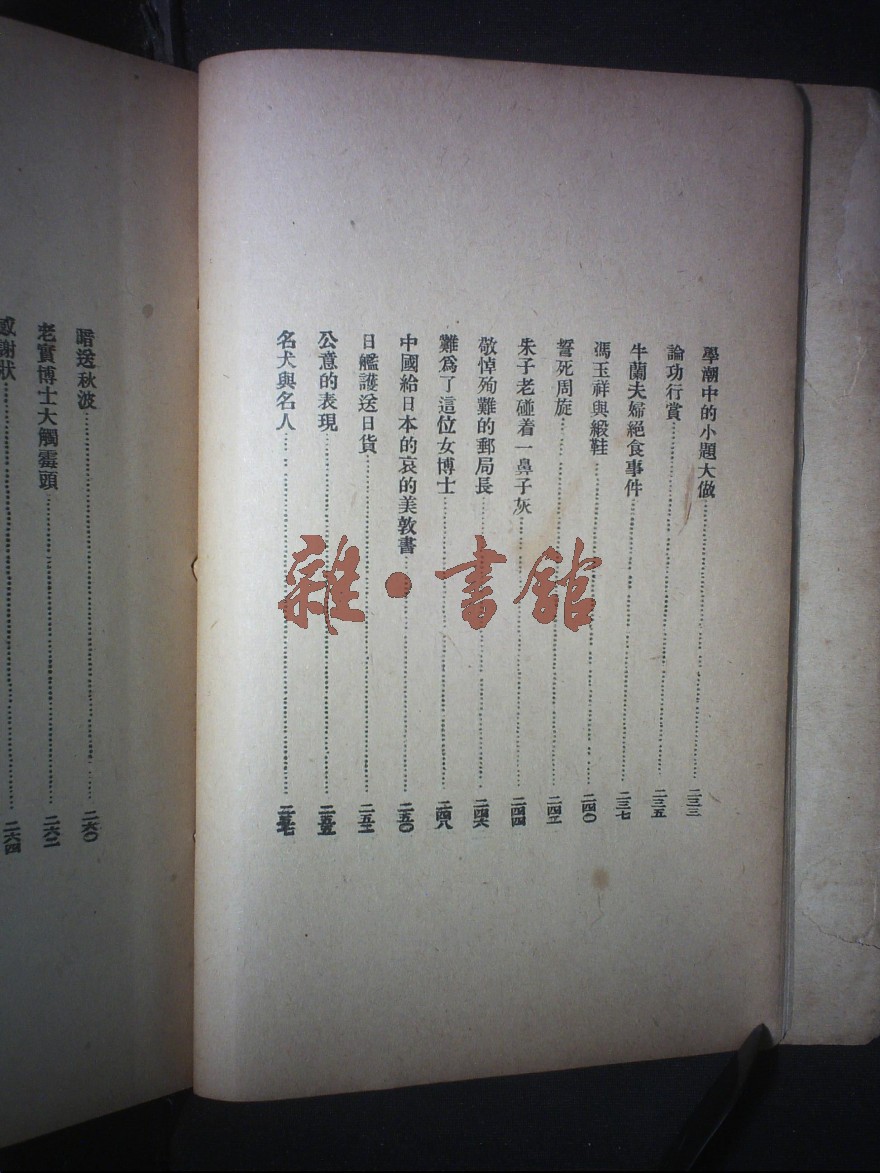 學潮中的小題大做……二三三
論功行賞……二三五
牛蘭夫婦絕食事件……二三七
馮玉祥與緞鞋……二四〇
誓死周旋……二四二
朱子老碰着一鼻子灰……二四四
敬悼殉難的郵局長……二四六
難爲了這位女博士……二四八
中國給日本的哀的美敦書……二五〇
日艦護送日貨……二五二
公意的表現……二五五
名犬與名人……二五七
暗送秋波……二六〇
老實博士大觸霉頭……二六二
感謝狀……二六四
雜·書館